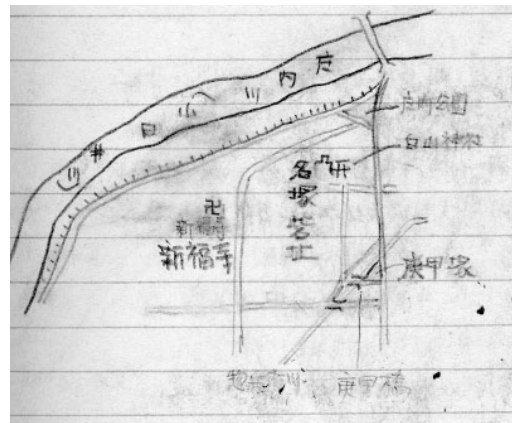 庄内川(小田井川)
庄内公園
白山神社
名塚砦址
卍
新福寺
新福寺
庚申塚
庚申橋